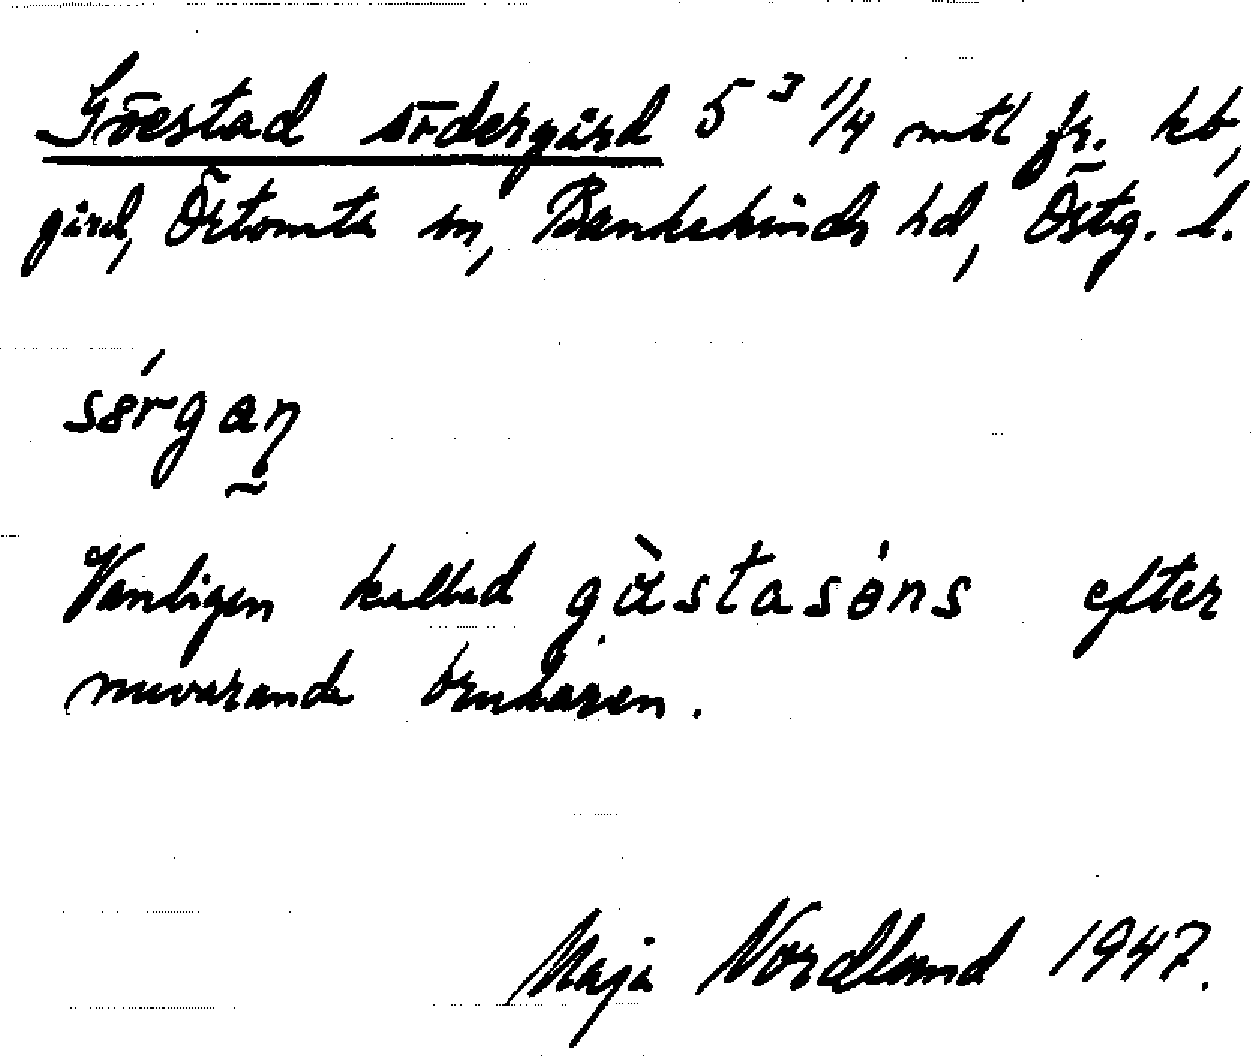 Göestad södergård 5³ 1/4 mtl fr. kb,
gård, Örtomta sn, Bankekinds hd, Östg. l.
sørgaɳ
Vanligen kallad gàstasóns efter
nuvarande brukaren.
Maja Nordlund 1947.